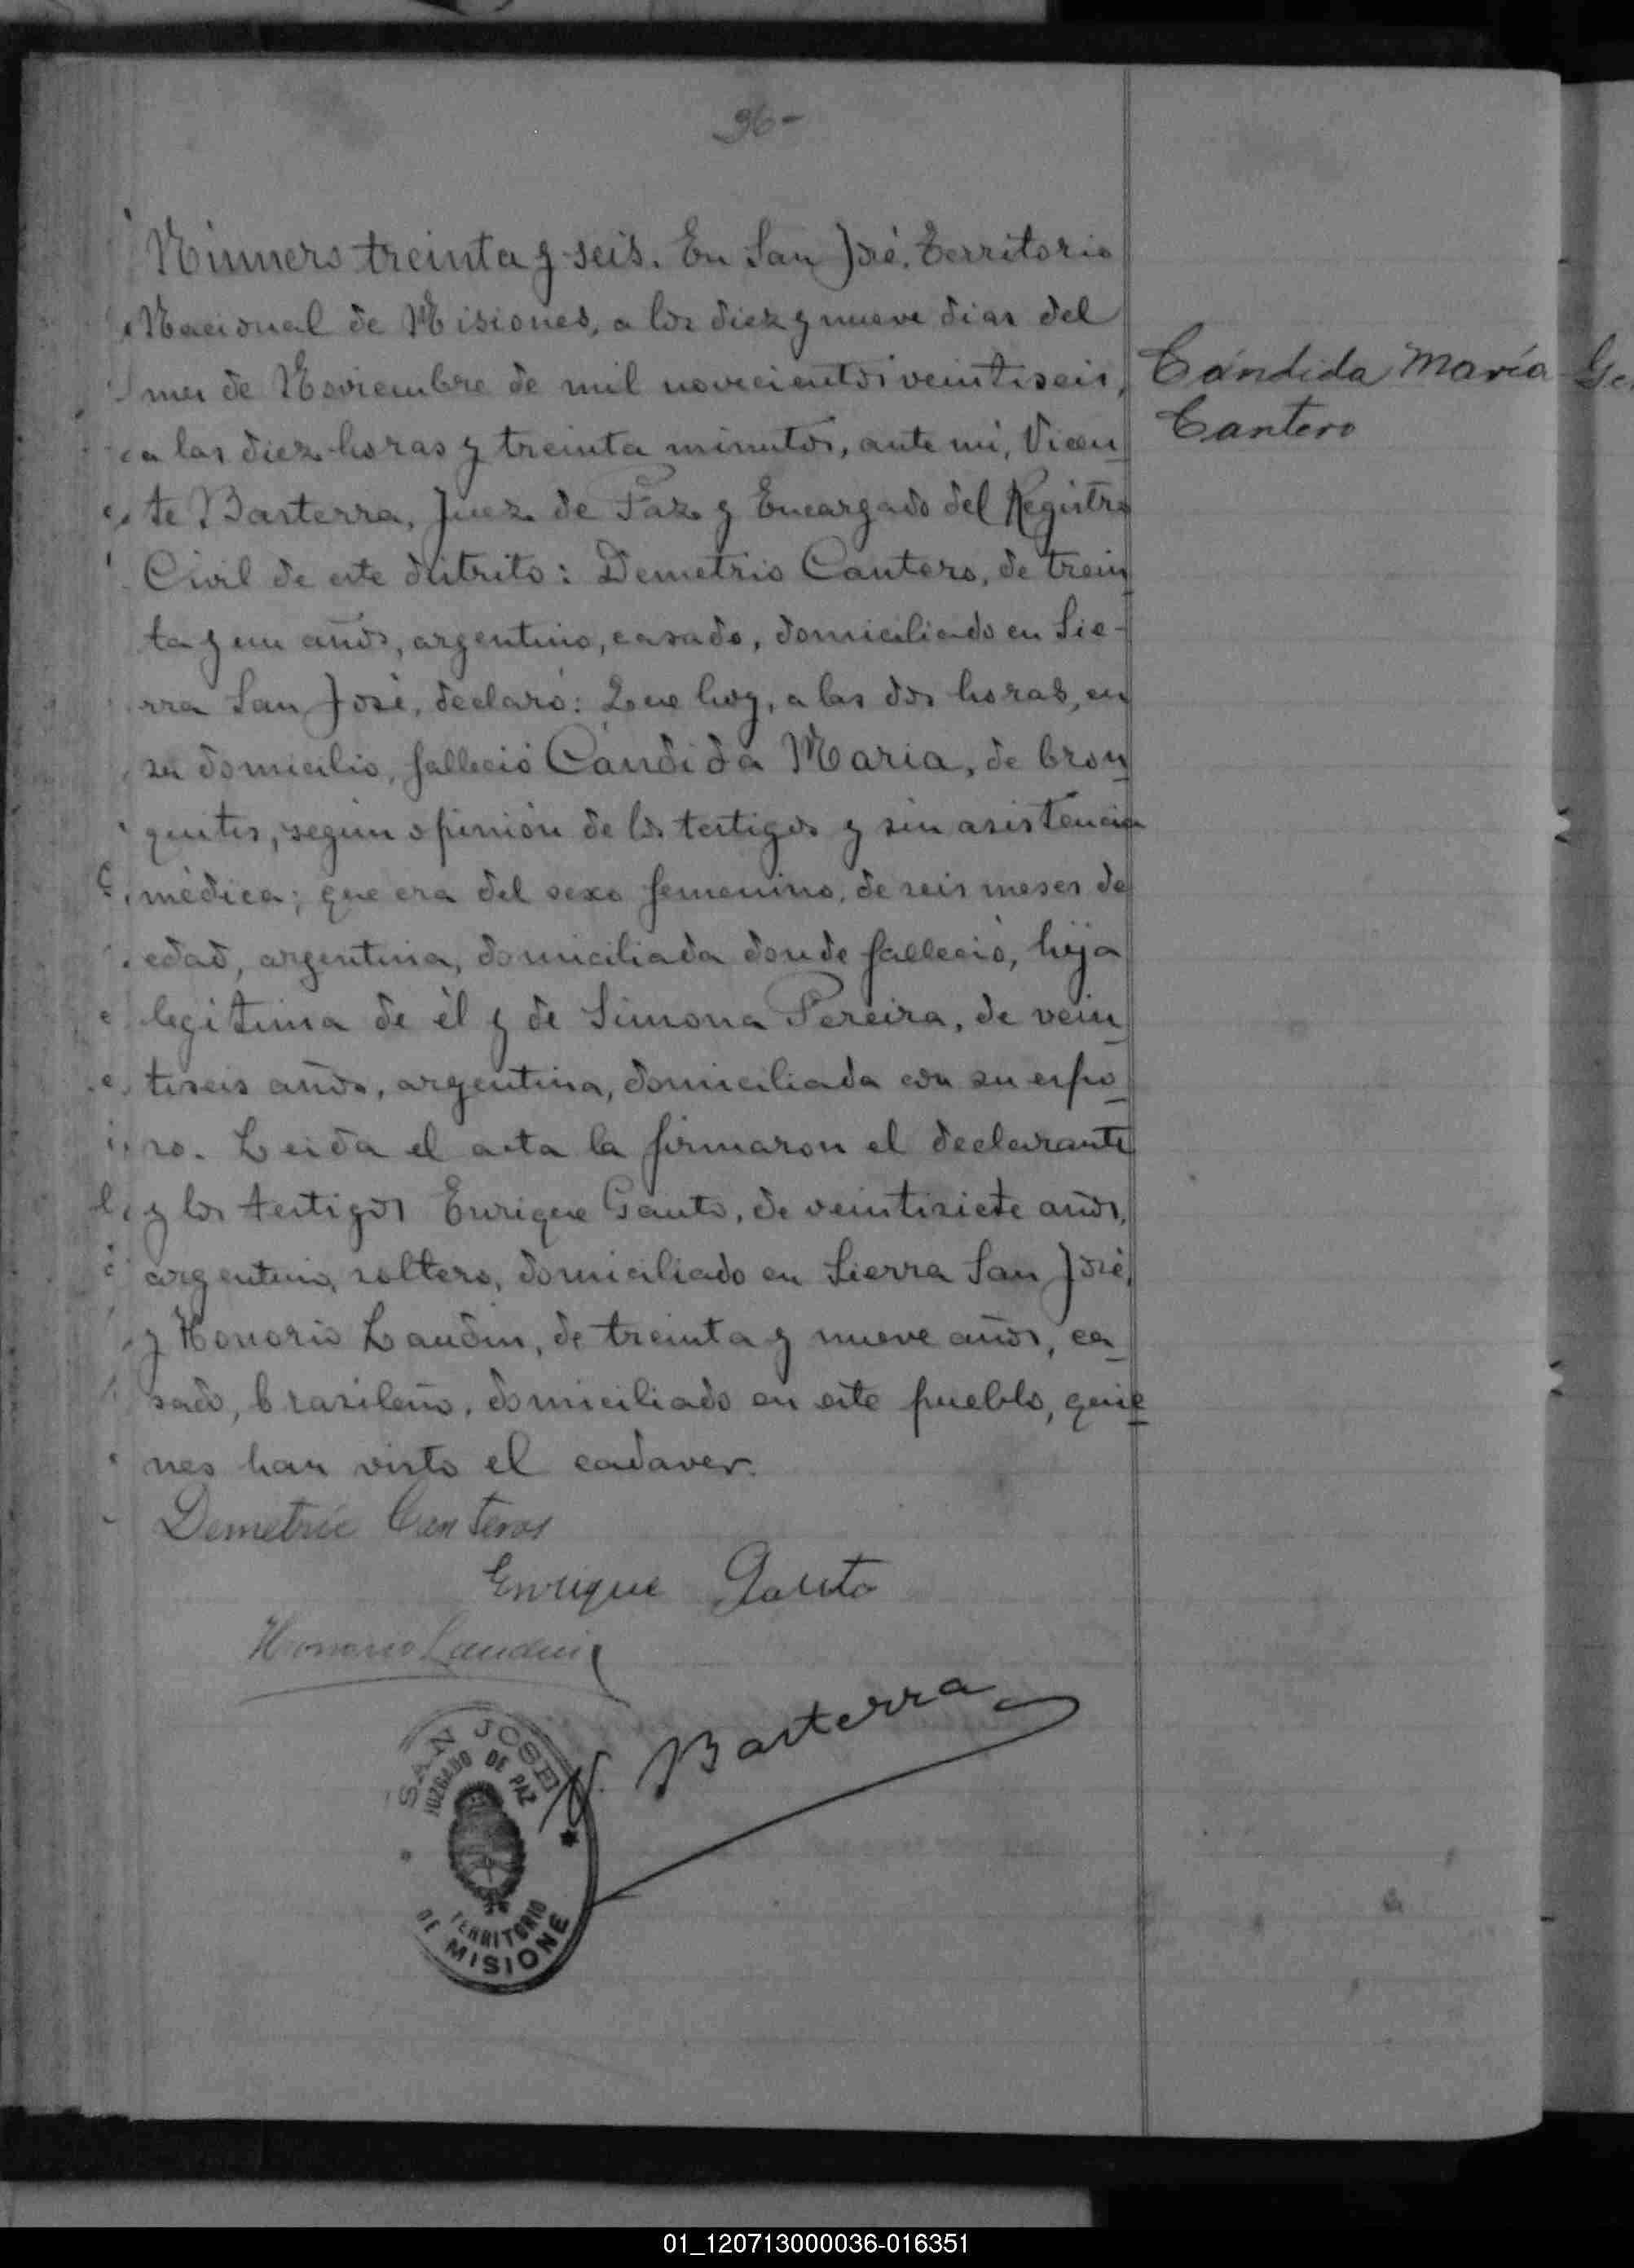 36-
Número treinta y seis. En San José, Territorio
Nacional de Misiones, a los diez y nueve dias del
mes de Noviembre de mil novecientos veintiseis,
a las diez horas y treinta minutos, ante mi, Vicen
te Basterra, Juez de Paz y Encargado del Registro
Civil de este distrito: Demetrio Cantero, de trein
ta y un años, argentino, casado, domiciliado en Sie-
rra San José, declaró: Que hoy, a las dos horas, en
su domicilio, falleció Cándida Maria, de bron
quitis, según opinión de los testigos y sin asistencia
médica; que era del sexo femenino, de seis meses de
edad, argentina, domiciliada donde falleció, hija
legitima de él y de Simona Pereira, de vein
tiseis años, argentina, domiciliada con su espo
so. Leida el acta la firmaron el declarante
y los testigos Enrique Gauto, de veintisiete años,
argentino, soltero, domiciliado en Sierra San José,
y Honorio Laudin, de treinta y nueve años, ca
sado, brasileño, domiciliado en este pueblo, quie
nes han visto el cadaver.
Cándida María
Cantero
Demetrio Canteros
Enrique Gauto
Honorio Laudin
V. Basterra
SAN JOSE
JUZGADO DE PAZ
TERRITORIO
DE MISIONE
01_120713000036-016351